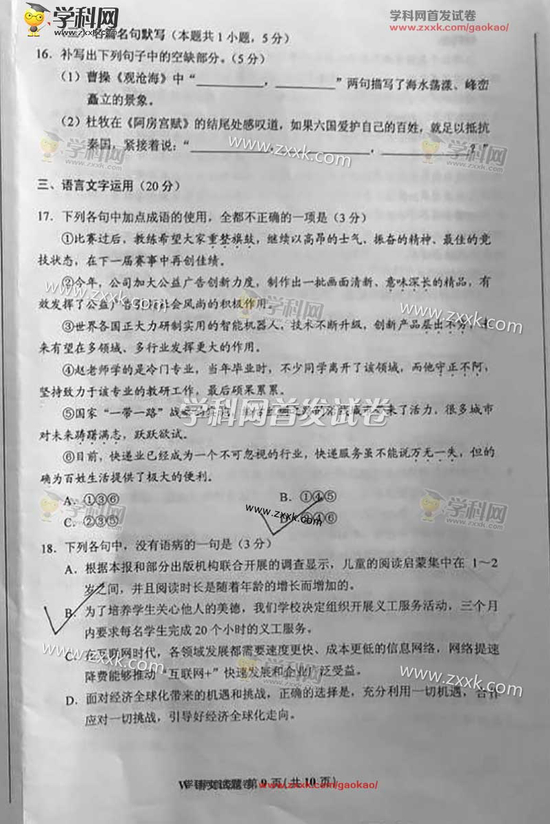 学科网
ZXXK.COM
学科网首发试卷
www.zxxk.com/gaokao/
名篇名句默写(本题共1小题,5分)
16. 补写出下列句子中的空缺部分。(5分)
(1)曹操《观沧海》中“____________,____________”两句描写了海水荡漾、峰峦
矗立的景象。
(2)杜牧在《阿房宫赋》的结尾处感叹道,如果六国爱护自己的百姓,就足以抵抗
秦国,紧接着说:“____________,____________,____________?”
三、语言文字运用(20分)
17. 下列各句中加点成语的使用,全都不正确的一项是(3分)
①比赛过后,教练希望大家重整旗鼓,继续以高昂的士气、振奋的精神、最佳的竞
技状态,在下一届赛事中再创佳绩。
②今年,公司加大公益广告创新力度,制作出一批画面清新、意味深长的精品,有
效发挥了公益广告引领社会风尚的积极作用。
③世界各国正大力研制实用的智能机器人,技术不断升级,创新产品层出不穷,未
来有望在多领域、多行业发挥更大的作用。
④赵老师学的是冷门专业,当年毕业时,不少同学离开了该领域,而他守正不阿,
坚持致力于该专业的教研工作,最后硕果累累。
⑤国家“一带一路”战 来了活力,很多城市
对未来踌躇满志,跃跃欲试。
⑥目前,快递业已经成为一个不可忽视的行业,快递服务虽不能说万无一失,但的
确为百姓生活提供了极大的便利。
A. ①③⑥ B. ①④⑤
C. ②③⑤ D. ②④⑥
18. 下列各句中,没有语病的一句是(3分)
A. 根据本报和部分出版机构联合开展的调查显示,儿童的阅读启蒙集中在1~2
岁之间,并且阅读时长是随着年龄的增长而增加的。
B. 为了培养学生关心他人的美德,我们学校决定组织开展义工服务活动,三个月
内要求每名学生完成20个小时的义工服务。
C. 在互联网时代,各领域发展都需要速度更快、成本更低的信息网络,网络提速
降费能够推动“互联网+”快速发展和企业广泛受益。
D. 面对经济全球化带来的机遇和挑战,正确的选择是,充分利用一切机遇,合作
应对一切挑战,引导好经济全球化走向。
W·语文试题 第9页(共10页)
www.zxxk.com/gaokao/